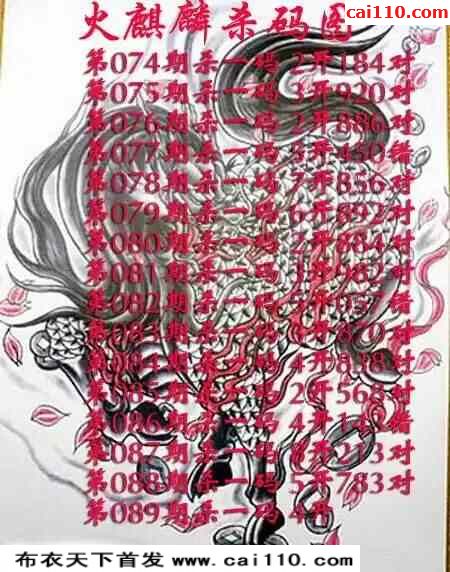 cai110.com
火麒麟杀码图
第074期杀一码 2开184对
第075期杀一码 3开920对
第076期杀一码 2开886对
第077期杀一码 5开450错
第078期杀一码 7开856对
第079期杀一码 6开892对
第080期杀一码 2开884对
第081期杀一码 开982对
第082期杀一码 开057错
第083期杀一码 开870对
第084期杀一码 4开838对
第085期杀一码 2开568对
第086期杀一码 4开14错
第087期杀一码 6开213对
第088期杀一码 5开783对
第089期杀一码 4开
布衣天下首发 www.cai110.com